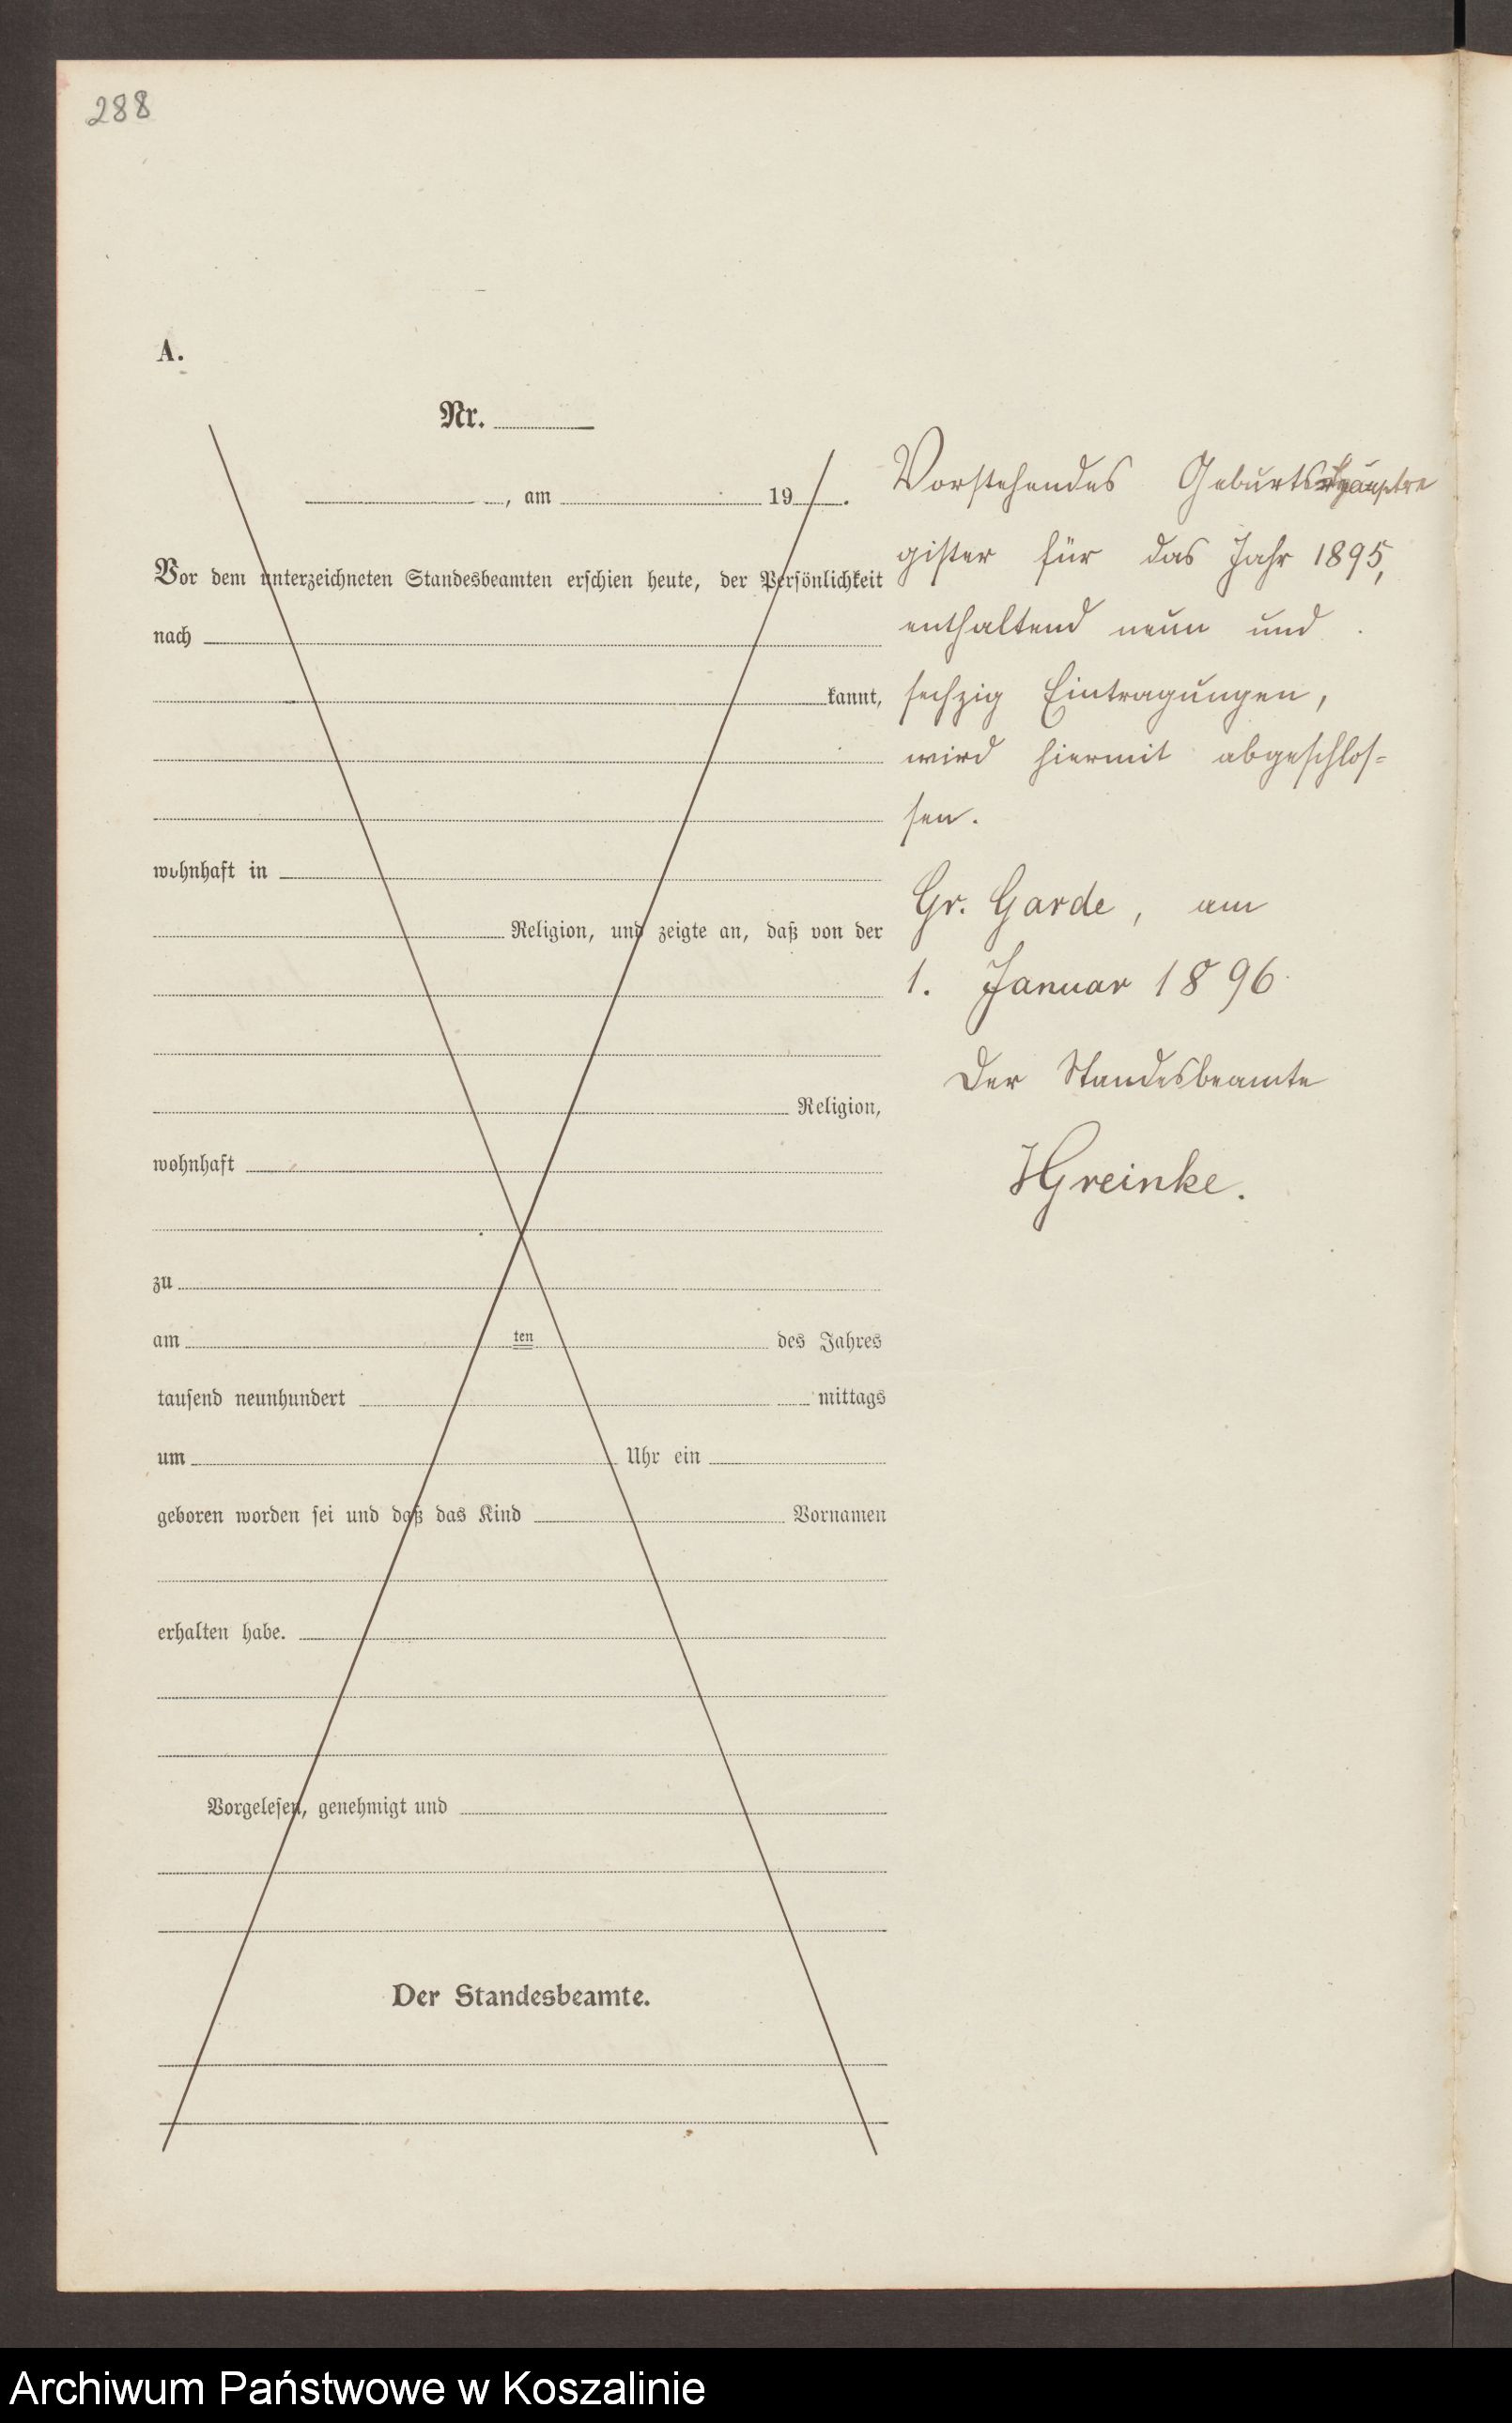 288
A.
Nr.
, am 19 .
Vor dem unterzeichneten Standesbeamten erschien heute, der Persönlichkeit
nach
kannt,
wohnhaft in
Religion, und zeigte an, daß von der
Religion,
wohnhaft
zu
am ten des Jahres
tausend neunhundert mittags
um Uhr ein
geboren worden sei und daß das Kind Vornamen
erhalten habe.
Vorgelesen, genehmigt und
Der Standesbeamte.
Vorstehendes Geburtshauptre
gister für das Jahr 1895,
enthaltend neun und
sechzig Eintragungen,
wird hiermit abgeschlos=
sen.
Gr. Garde, am
1. Januar 1896
Der Standesbeamte
HGreinke.
Archiwum Państwowe w Koszalinie